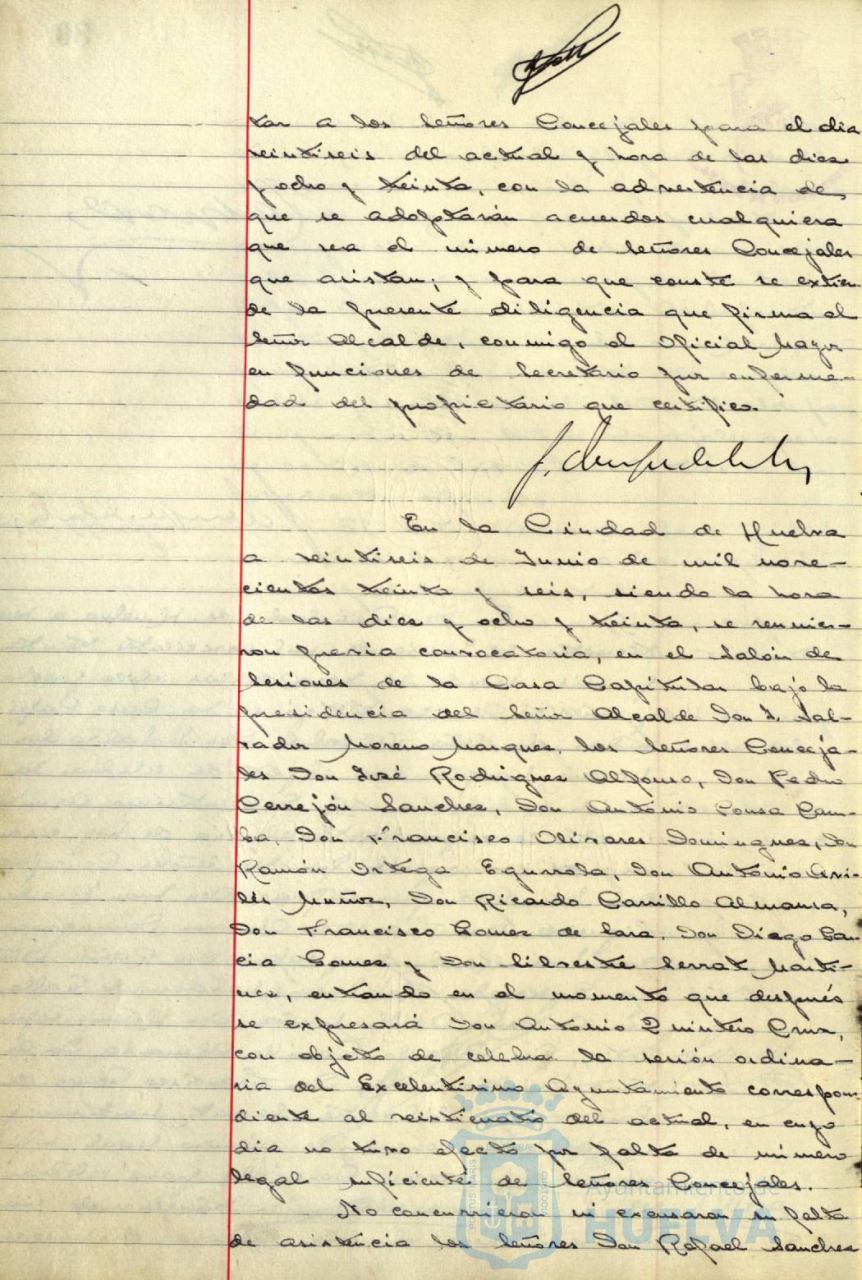 tar a los Señores Concejales para el dia
veintiseis del actual y hora de las diez
y ocho y treinta, con la advertencia de
que se adoptarán acuerdos cualquiera
que sea el número de Señores Concejales
que asistan; y para que conste se extien-
de la presente diligencia que firma el
Señor Alcalde, conmigo el Oficial Mayor
en funciones de Secretario por enferme-
dad del propietario que certifico.
En la Ciudad de Huelva
a veintiseis de Junio de mil nove-
cientos treinta y seis, siendo la hora
de las diez y ocho y treinta, se reunie-
ron previa convocatoria, en el Salón de
Sesiones de la Casa Capitular bajo la
presidencia del Señor Alcalde Don Sal-
vador Moreno Marquez, los Señores Conceja-
les Don José Rodriguez Alfonso, Don Pedro
Cerrejón Sanchez, Don Antonio Pousa Cam-
ba, Don Francisco Olivares Dominguez, Don
Ramón Ortega Egurrola, Don Antonio Avi-
lés Muñoz, Don Ricardo Carrillo Almansa,
Don Francisco Gomez de Lara, Don Diego Gar
cia Gomez y Don Silvestre Serrat Marti-
nez, entrando en el momento que después
se expresará Don Antonio Quintero Cruz,
con objeto de celebrar la sesión ordina-
ria del Excelentisimo Ayuntamiento correspon-
diente al veinticuatro del actual, en cuyo
dia no tuvo efecto por falta de número
legal suficiente de Señores Concejales.
No concurrieron ni excusaron su falta
de asistencia los Señores Don Rafael Sanchez
Ayuntamiento de
HUELVA